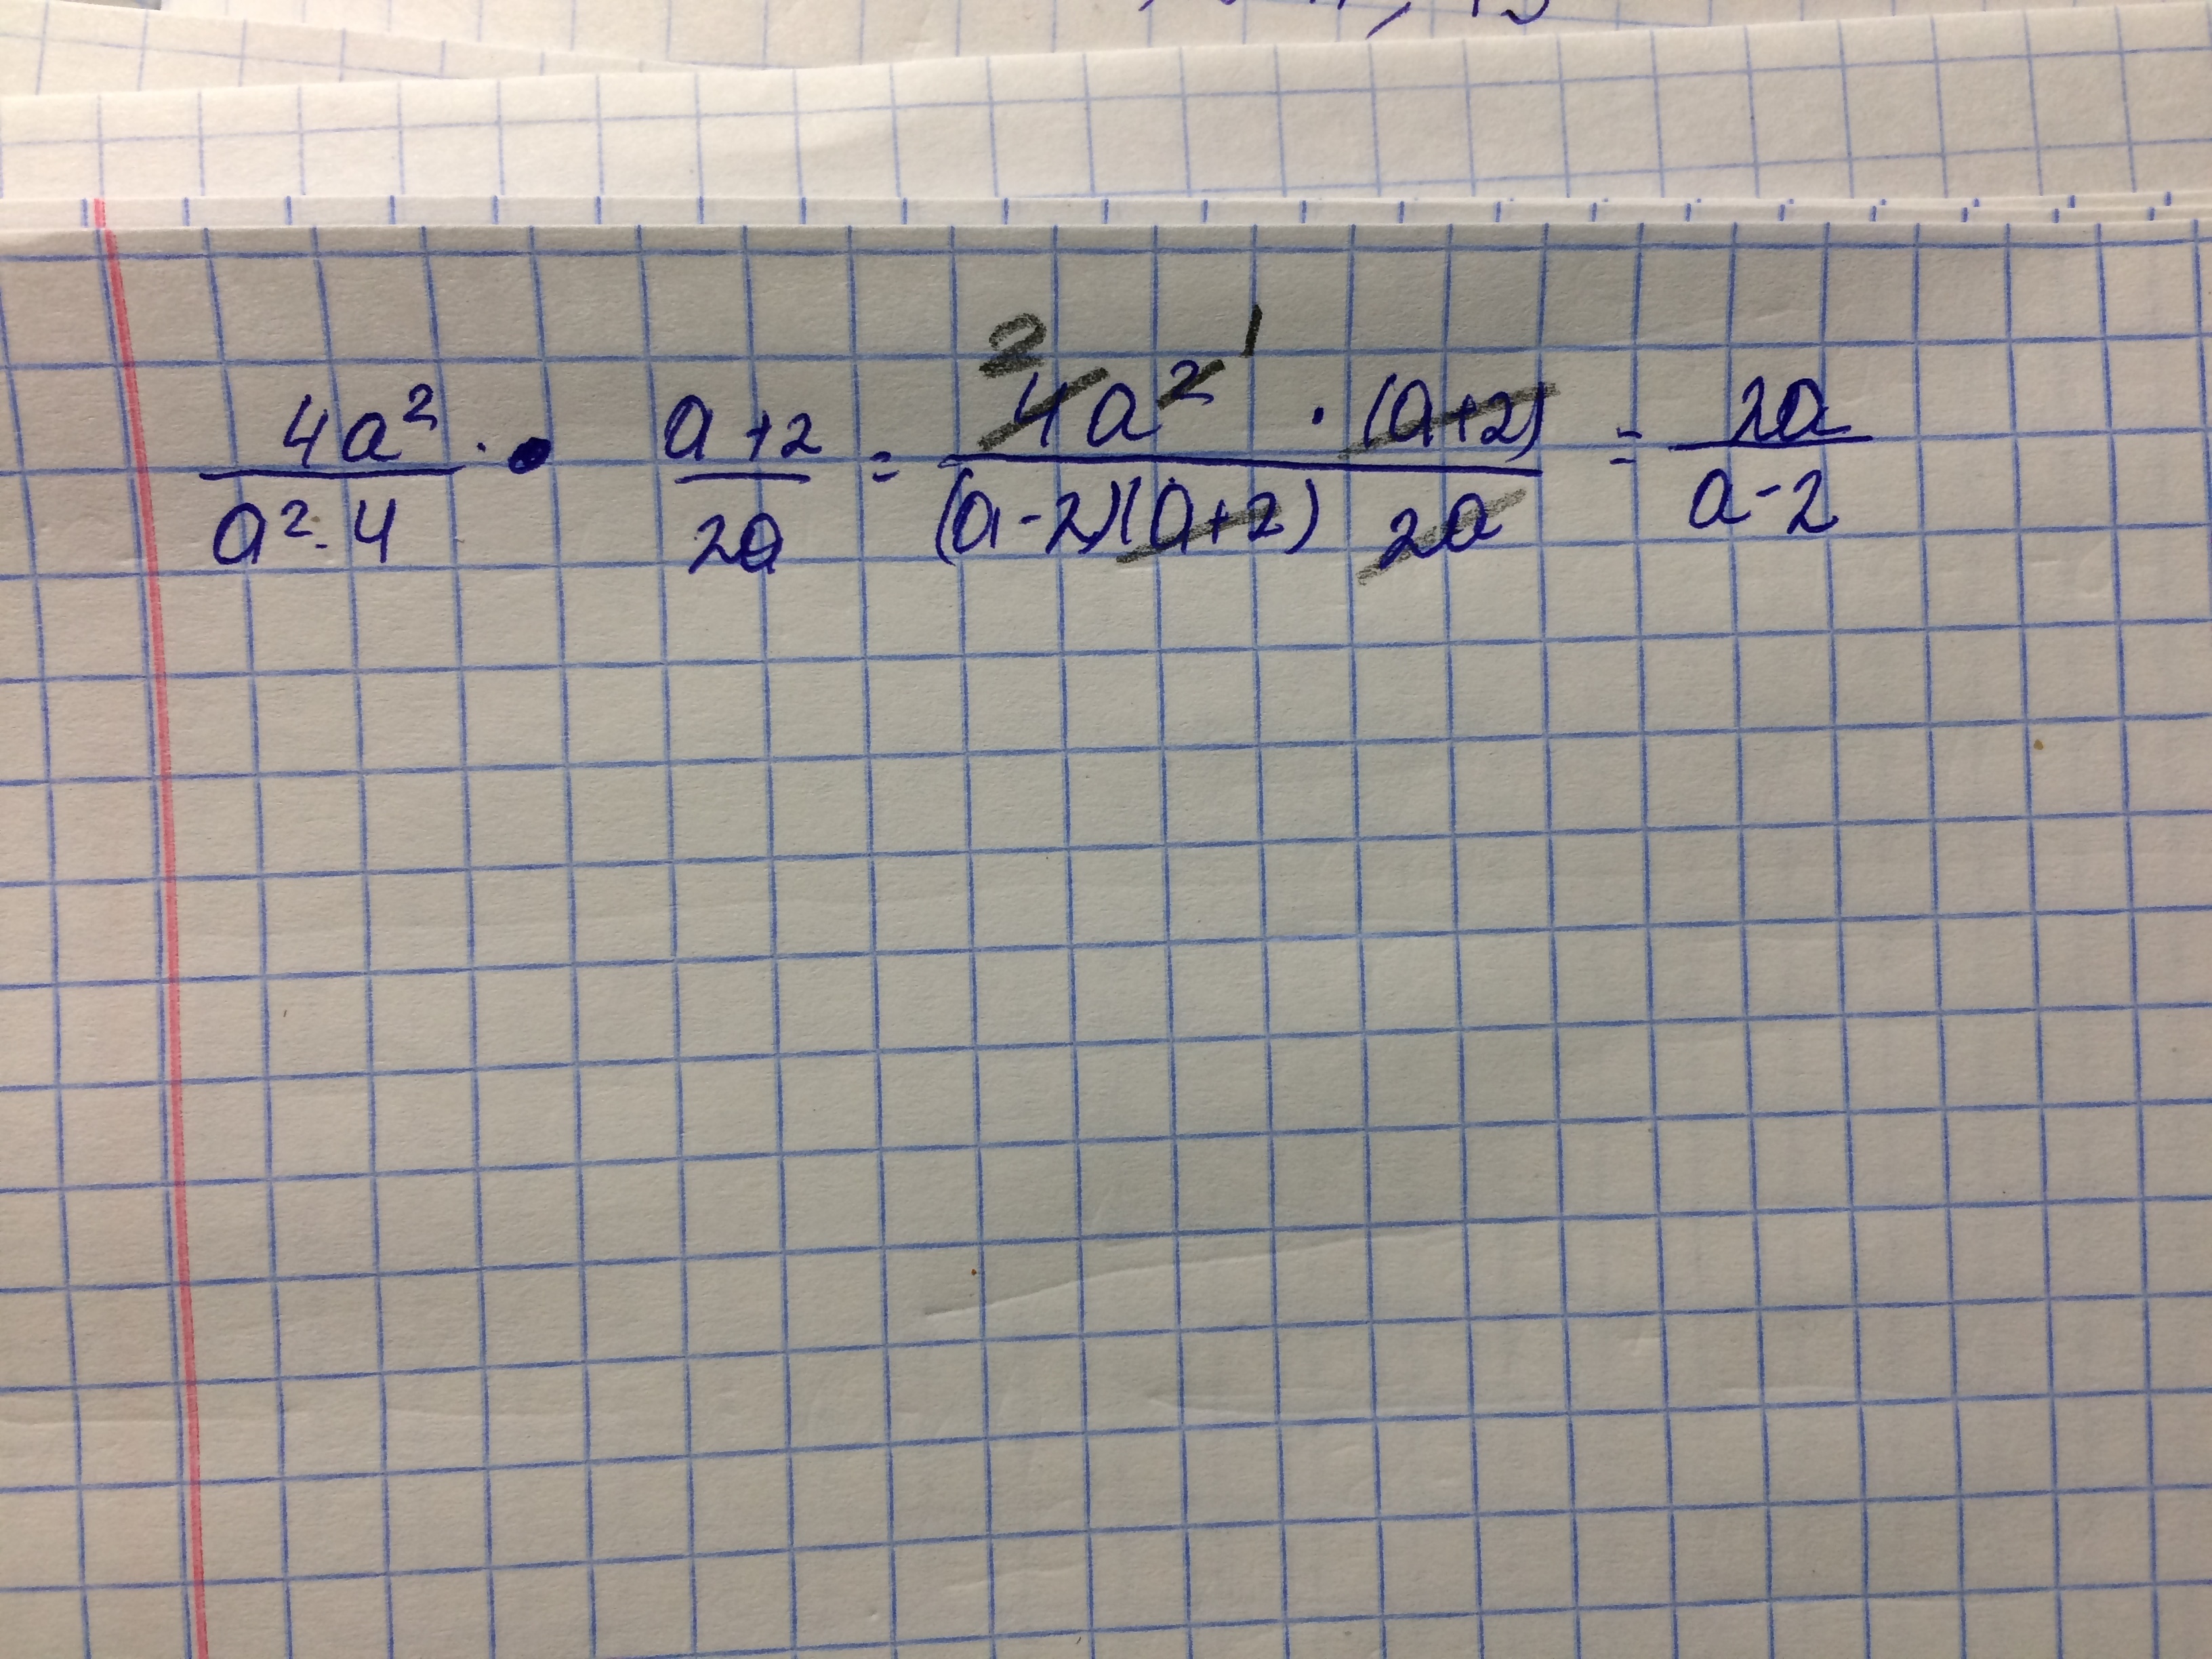 4a²/(a²-4) · (a+2)/(2a) = (4a² · (a+2))/((a-2)(a+2) 2a) = 2a/(a-2)
2 1